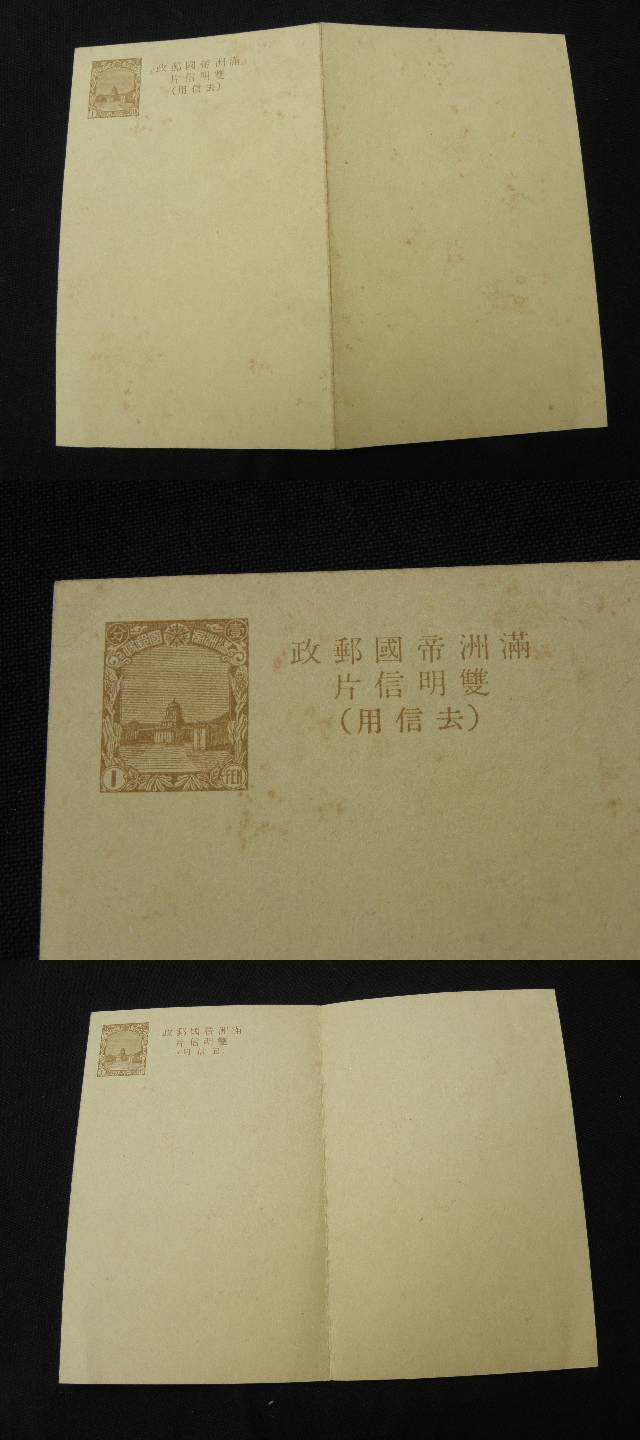 滿洲帝國郵政
雙明信片
(去信用)
滿洲帝國郵政
壹分
1 FEN
滿洲帝國郵政
雙明信片
(去信用)
滿洲帝國郵政
雙明信片